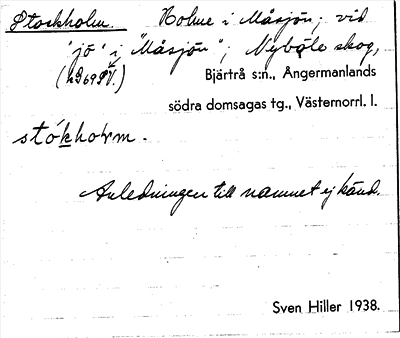 Stockholm. Holme i Måsjön; vid
'jö' i "Måsjön"; Nyböle skog,
Bjärtrå s:n., Ångermanlands
södra domsagas tg., Västernorrl. l.
stókholm.
Anledningen till namnet ej känd.
Sven Hiller 1938.